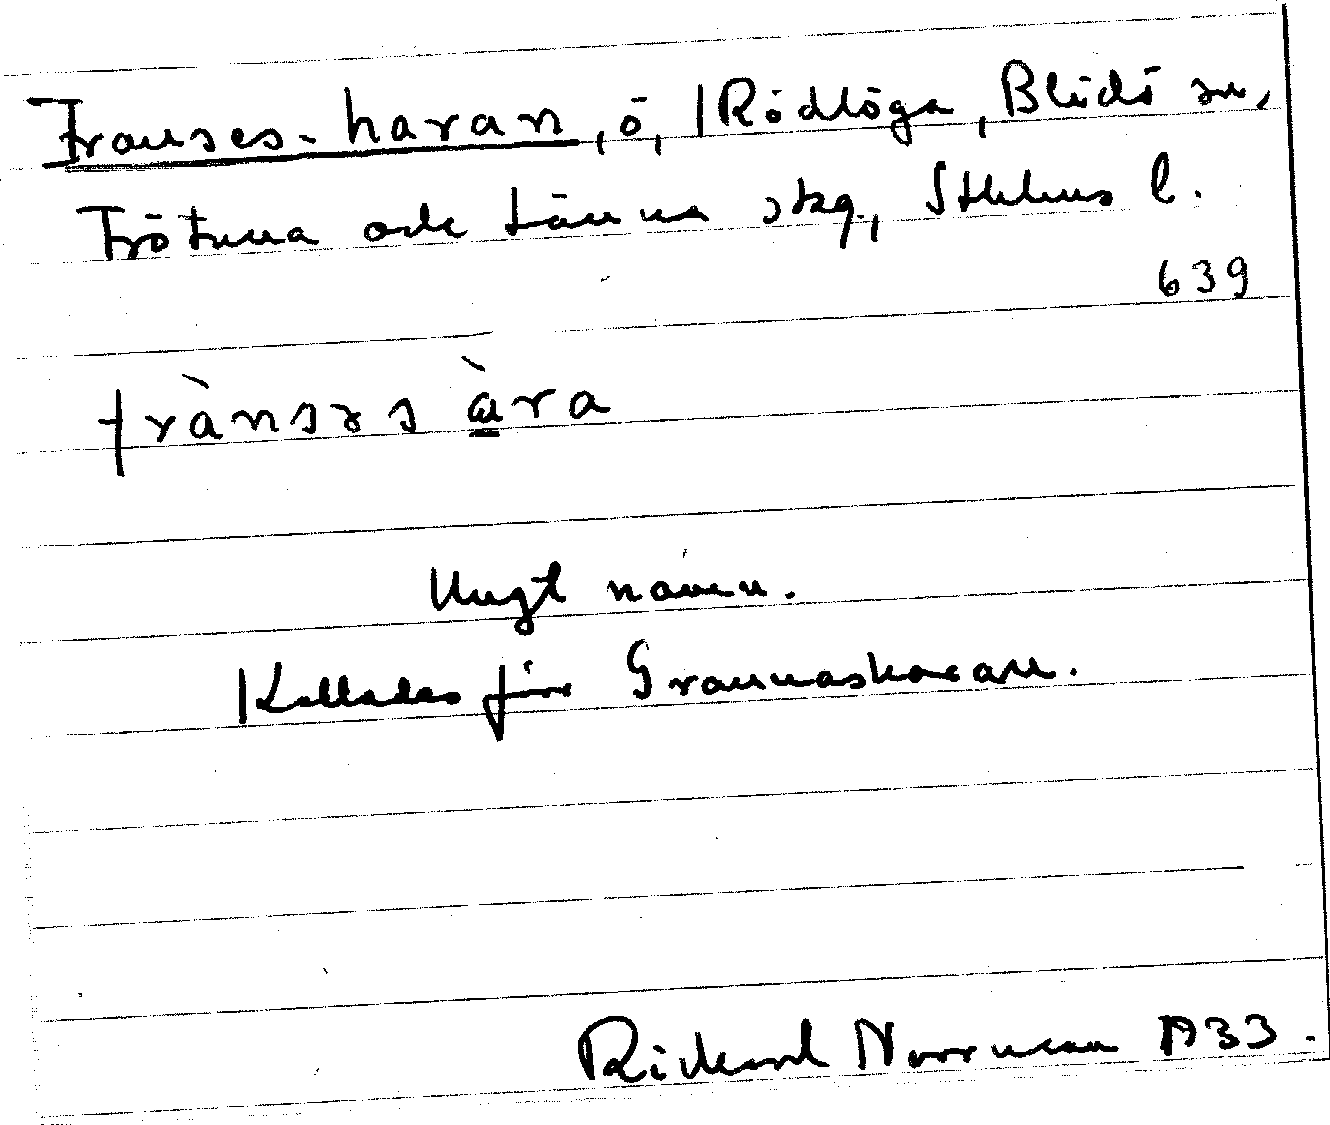 Franses-haran, ö, Rödlöga, Blidö sn,
Frötuna och Länna skg, Sthlms l.
639
frànsəs àra
Ungt namn.
Kallades förr Grannaskäran.
Rickard Norrman 1933.